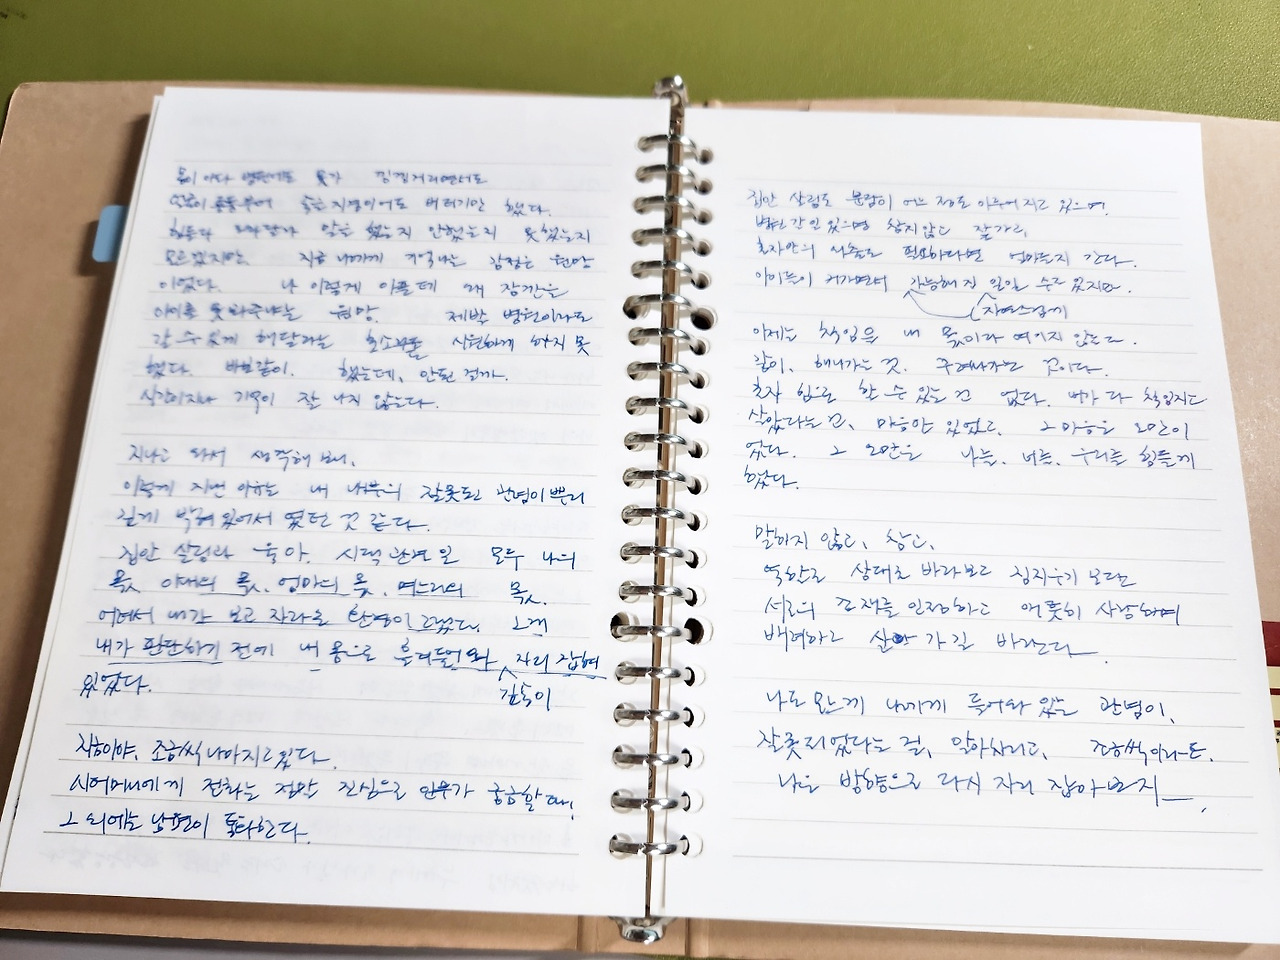 몸이 아파 병원에도 못가 낑낑거리면서도
온몸이 퉁퉁부어 죽을 지경이어도 버티기만 했다.
힘들다 말은 했는지 안했는지 못했는지
모르겠지만, 지금 나에게 기억나는 감정은 원망
이었다. 나 이렇게 아픈데 왜 잠깐을
아이를 못 봐주냐는 원망. 제발 병원이라도
갈 수 있게 해달라는 호소를 시원하게 하지 못
했다. 바보같이. 했는데, 안된 걸까.
시간이 지나 기억이 잘 나지 않는다.
지나고 와서 생각해 보니,
이렇게 지낸 이유는 내 내부의 잘못된 관념이 뿌리
깊게 박혀 있어서 였던 것 같다.
집안 살림과 육아, 시댁 관련 일 모두 나의
몫, 아내의 몫, 엄마의 몫, 며느리의 몫.
어려서 내가 보고 자라온 환경이 그랬다. 그게
내가 판단하기 전에 내 몸으로 흘러들어와 자리 잡혀
깊숙이
있었다.
지금이야, 조금씩 나아지고 있다.
시어머니에게 전화는 정말 진심으로 안부가 궁금할 때,
그 외에는 남편이 통화한다.
집안 살림도 분담이 어느 정도 이루어지고 있으며,
병원 갈 일 있으면 참지 않고 잘 가고,
혼자만의 시간을 필요하다면 얼마든지 갖는다.
아이들이 커가면서 가능해진 일일 수도 있지만.
자연스럽게
이제는 책임을 내 몫이라 여기지 않는다.
같이, 해나가는 것. 꾸려나가는 것이다.
혼자 힘으로 할 수 있는 건 없다. 내가 다 책임지고
살았다는 건, 마음만 있었고, 그 마음은 오만이
었다. 그 오만은 나를, 너를, 우리를 힘들게
했다.
말하지 않고, 참고,
역할로 상대를 바라보고 짐지우기 보다는
서로의 존재를 인정하고 애틋히 사랑하며
배려하고 살아 가길 바란다.
나도 모르게 나에게 들어와 있는 관념이,
잘못되었다는 걸, 알아차리고, 조금씩이라도.
나은 방향으로 다시 자리 잡아 보자.